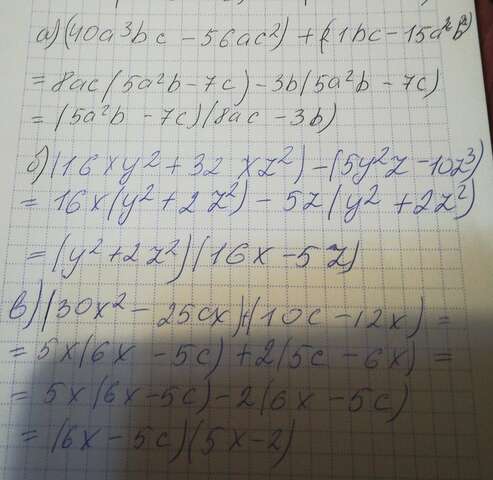 а) (40a³bc – 56ac²) + (21bc – 15a²b²)
= 8ac(5a²b – 7c) – 3b(5a²b – 7c)
= (5a²b – 7c)(8ac – 3b)
б) (16xy² + 32 xz²) – (5y²z – 10z³)
= 16x(y² + 2z²) – 5z(y² + 2z²)
= (y² + 2z²)(16x – 5z)
в) (30x² – 25cx) + (10c – 12x) =
= 5x(6x – 5c) + 2(5c – 6x) =
= 5x(6x – 5c) – 2(6x – 5c)
= (6x – 5c)(5x – 2)